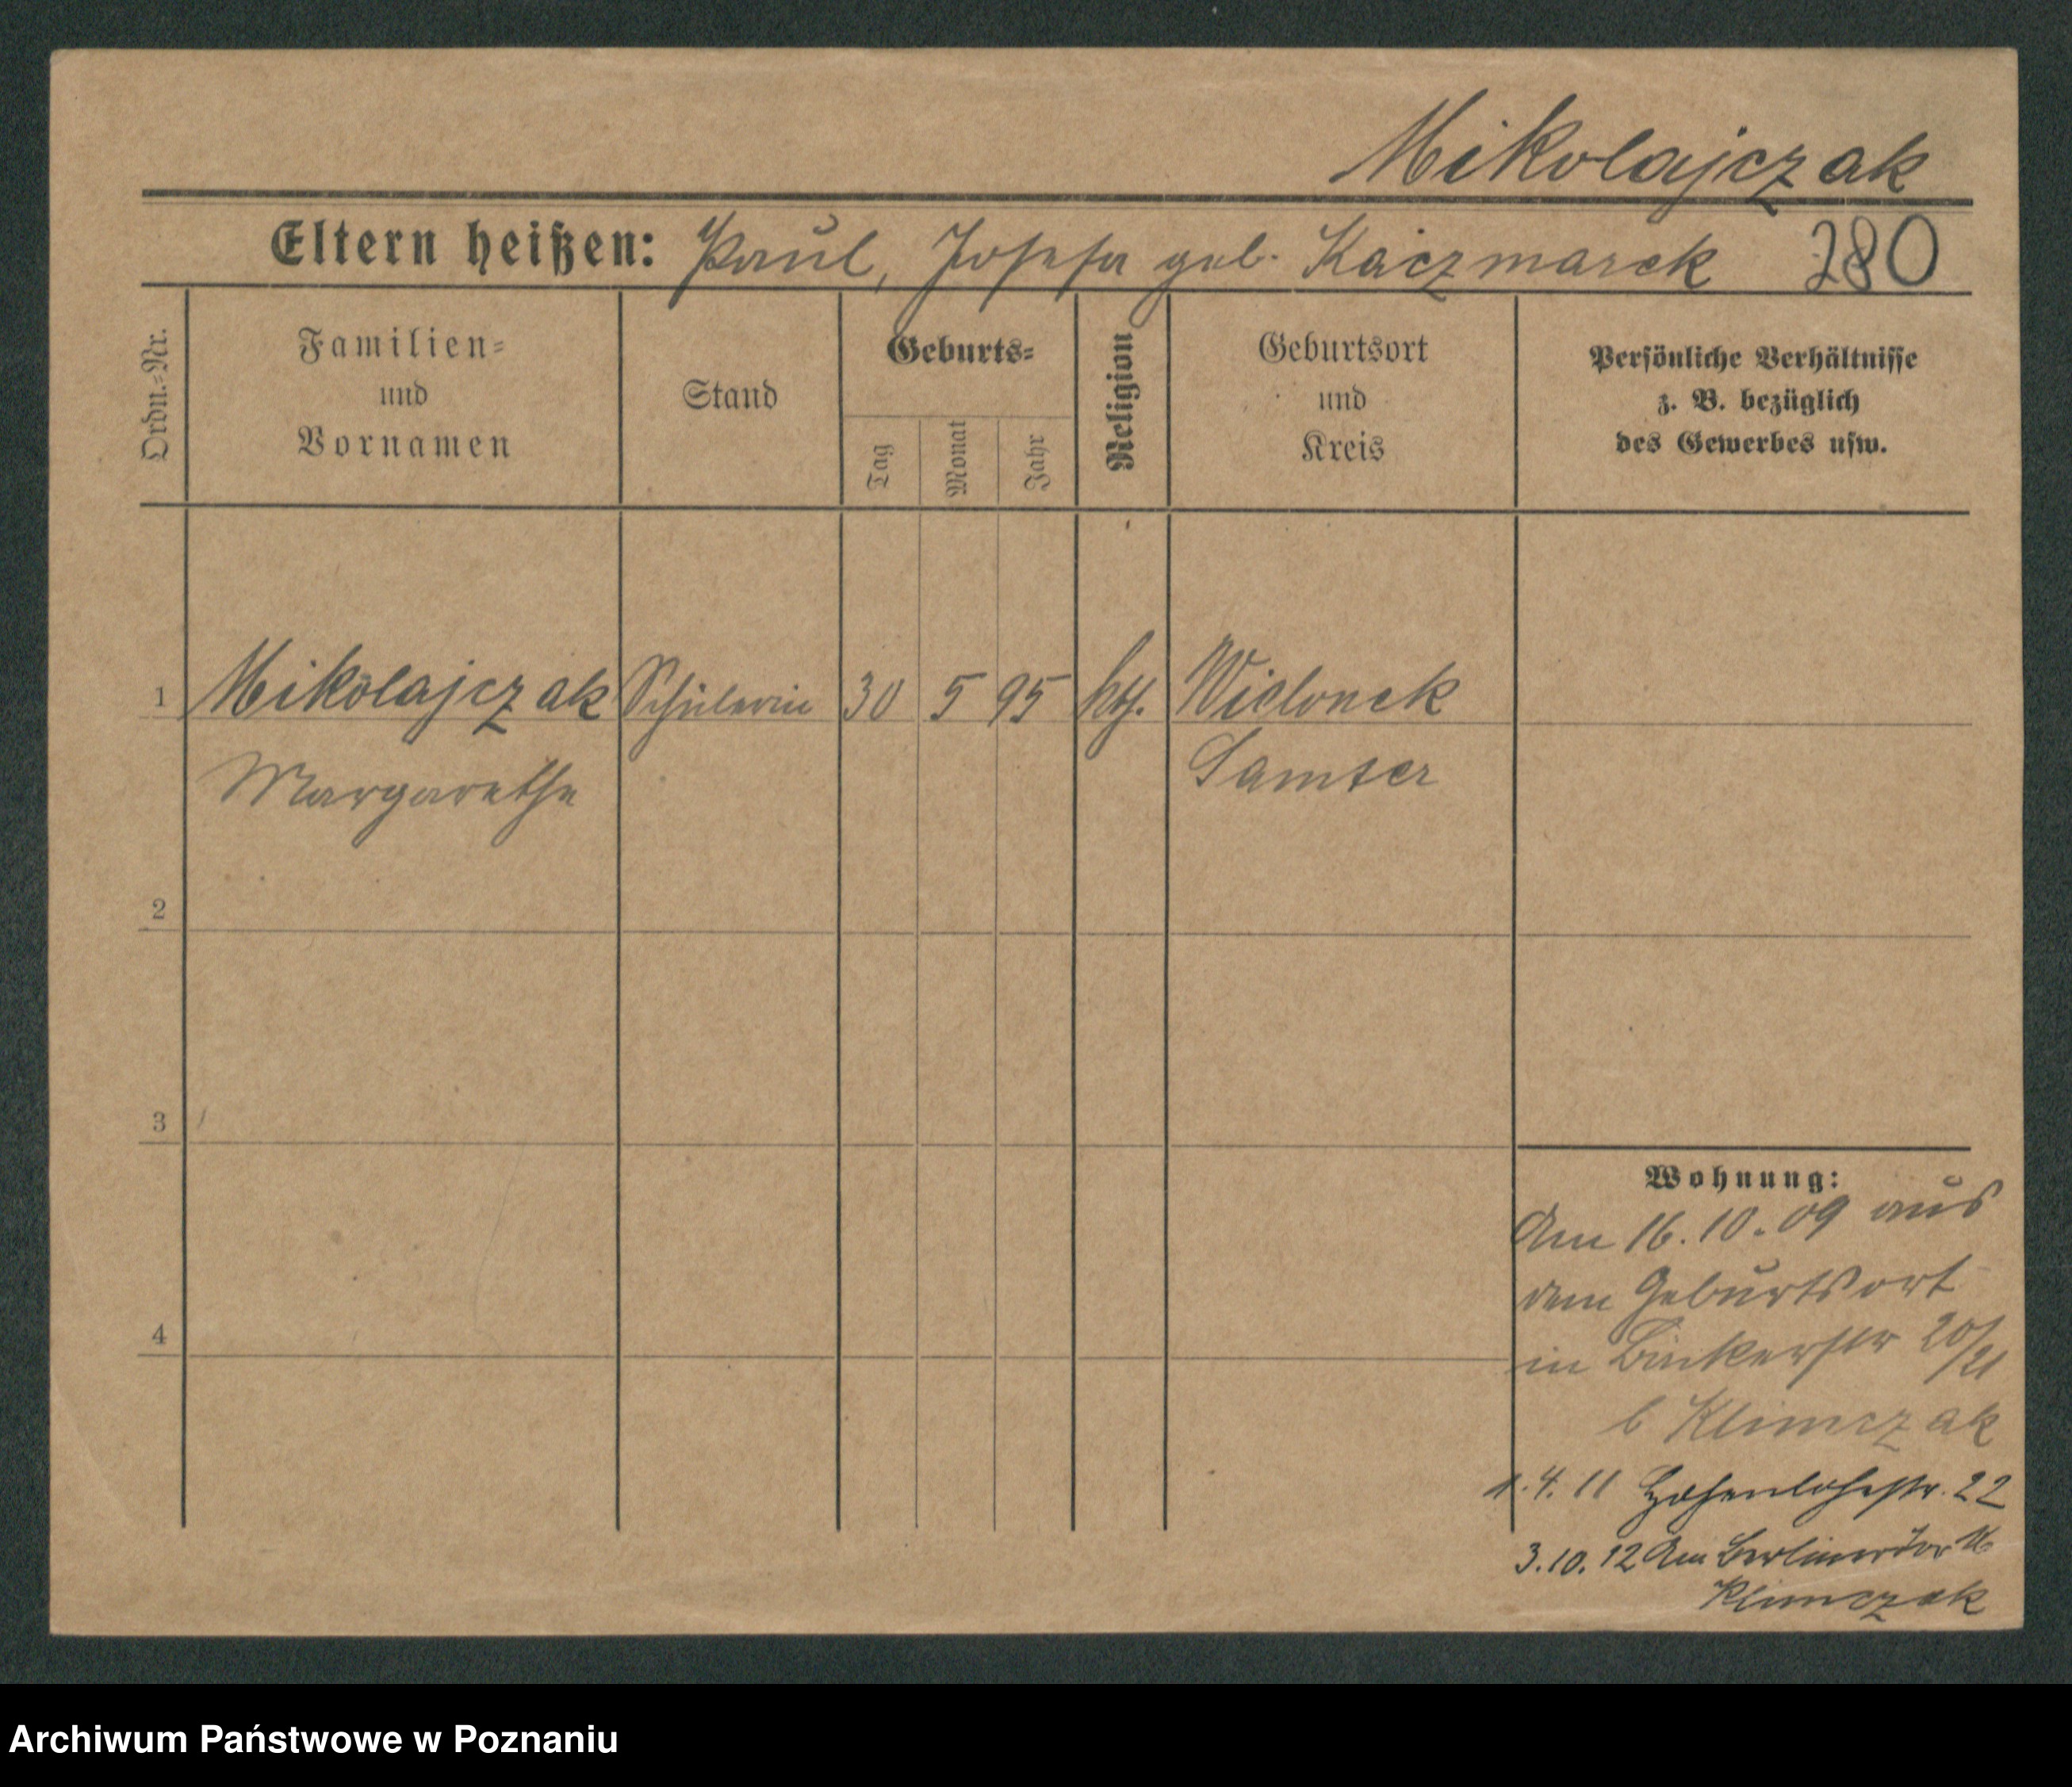 Mikolajczak
Eltern heißen: Paul, Josefa geb. Kaczmarek 280
Ordn.-Nr.
Familien-
und
Vornamen
Stand
Geburts-
Tag
Monat
Jahr
Religion
Geburtsort
und
Kreis
Persönliche Verhältnisse
z. B. bezüglich
des Gewerbes usw.
1 Mikolajczak Schülerin 30 5 95 kth. Wielonek
Margarethe Samter
2
3
4
Wohnung:
Am 16.10.09 aus
dem Geburtsort
in Bäckerstr 20/21
b Klimczak
1.4.11 Hohenlohestr. 22
3.10.12 Am Berlinertor
Klimczak
Archiwum Państwowe w Poznaniu